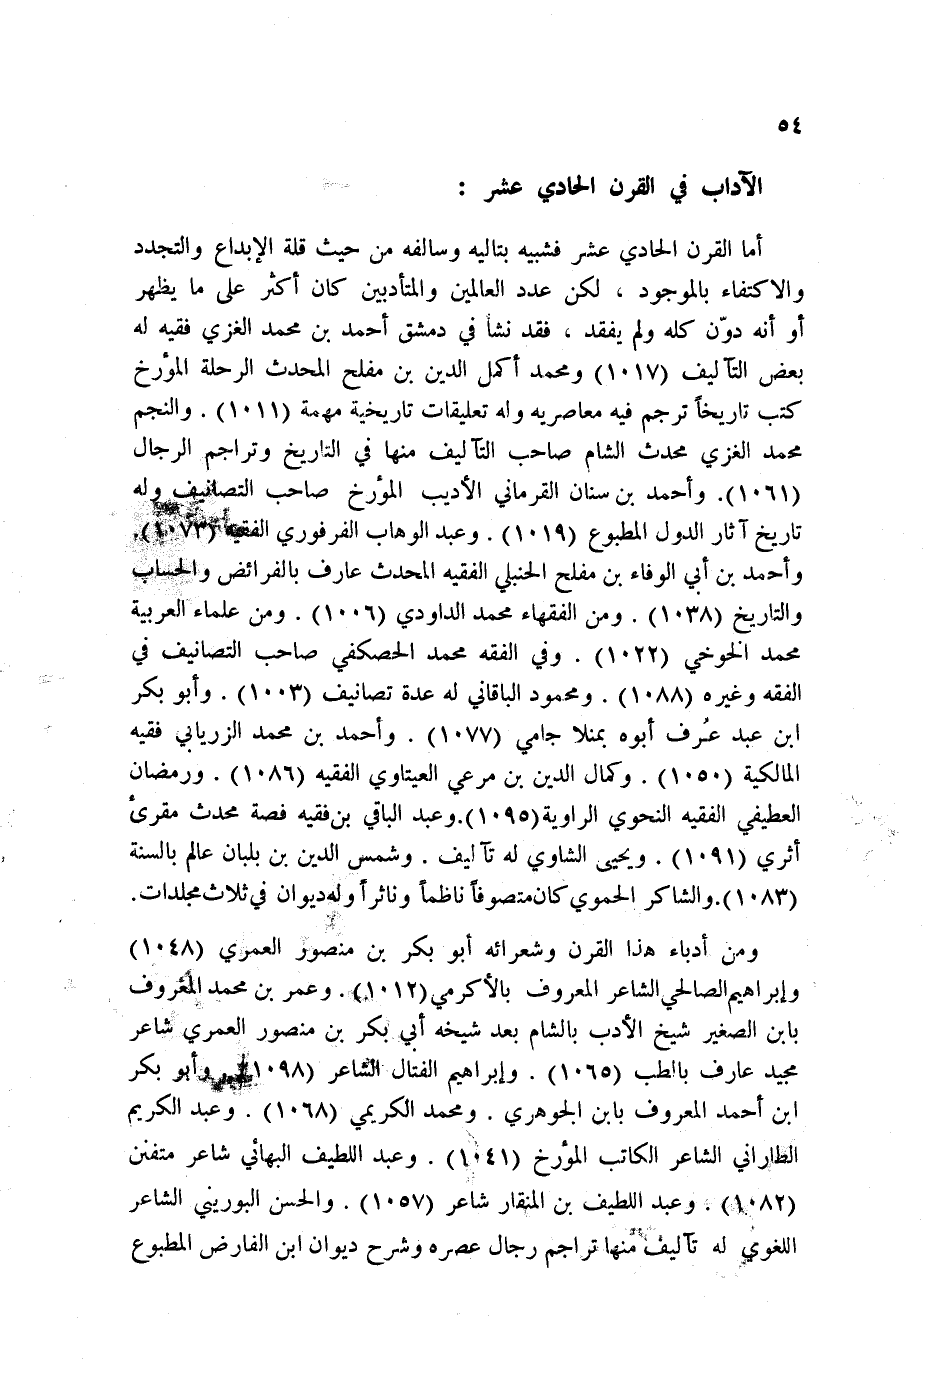 ٥٤
الآداب في القرن الحادي عشر :
أما القرن الحادي عشر فشبيه بتاليه وسالفه من حيث قلة الإبداع والتجدد
والاكتفاء بالموجود ، لكن عدد العالمين والمتأدبين كان أكثر على ما يظهر
أو أنه دوّن كله ولم يفقد ، فقد نشأ في دمشق أحمد بن محمد الغزي فقيه له
بعض التآليف (١٠١٧) ومحمد أكمل الدين بن مفلح المحدث الرحلة المؤرخ
كتب تاريخاً ترجم فيه معاصريه وله تعليقات تاريخية مهمة (١٠١١) . والنجم
محمد الغزي محدث الشام صاحب التآليف منها في التاريخ وتراجم الرجال
(١٠٦١). وأحمد بن سنان القرماني الأديب المؤرخ صاحب التصانيف وله
تاريخ آثار الدول المطبوع (١٠١٩) . وعبد الوهاب الفرفوري الفقيه (١٠٧٣).
وأحمد بن أبي الوفاء بن مفلح الحنبلي الفقيه المحدث عارف بالفرائض والحساب
والتاريخ (١٠٣٨) . ومن الفقهاء محمد الداودي (١٠٠٦) . ومن علماء العربية
محمد الخوخي (١٠٢٢) . وفي الفقه محمد الحصكفي صاحب التصانيف في
الفقه وغيره (١٠٨٨) . ومحمود الباقاني له عدة تصانيف (١٠٠٣) . وأبو بكر
ابن عبد عُرف أبوه بمنلا جامي (١٠٧٧) . وأحمد بن محمد الزرياني فقيه
المالكية (١٠٥٠) . وكمال الدين بن مرعي العيتاوي الفقيه (١٠٨٦) . ورمضان
العطيفي الفقيه النحوي الراوية (١٠٩٥).وعبد الباقي بن فقيه فصة محدث مقرئ
أثري (١٠٩١) . ويحيى الشاوي له تآليف . وشمس الدين بن بلبان عالم بالسنة
(١٠٨٣).والشاكر الحموي كان متصوفاً ناظماً وناثراً وله ديوان في ثلاث مجلدات.
ومن أدباء هذا القرن وشعرائه أبو بكر بن منصور العمري (١٠٤٨)
وإبراهيم الصالحي الشاعر المعروف بالأكرمي (١٠١٢) . وعمر بن محمد المعروف
بابن الصغير شيخ الأدب بالشام بعد شيخه أبي بكر بن منصور العمري شاعر
مجيد عارف بالطب (١٠٦٥) . وإبراهيم الفتال الشاعر (١٠٩٨) وأبو بكر
ابن أحمد المعروف بابن الجوهري . ومحمد الكريمي (١٠٦٨) . وعبد الكريم
الطاراني الشاعر الكاتب المؤرخ (١٠٤١) . وعبد اللطيف البهائي شاعر متفنن
(١٠٨٢) . وعبد اللطيف بن المنقار شاعر (١٠٥٧) . والحسن البوريني الشاعر
اللغوي له تآليف منها تراجم رجال عصره وشرح ديوان ابن الفارض المطبوع